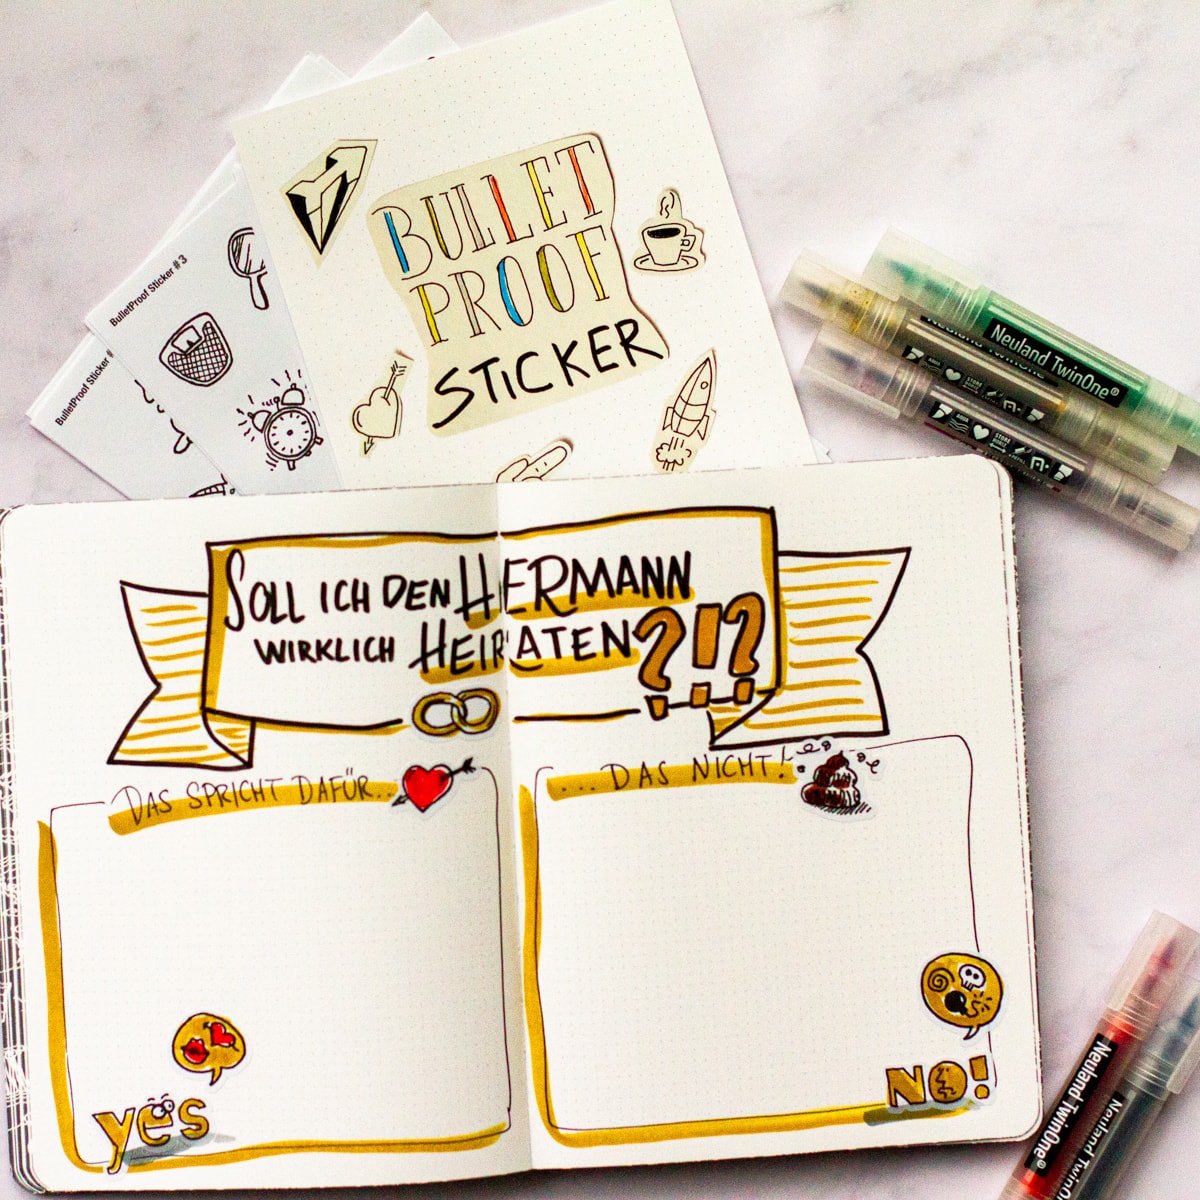 BULLET
PROOF
STICKER
BulletProof Sticker #3
BulletProof Sticker #
Neuland TwinOne®
SOLL ICH DEN HERMANN
WIRKLICH HEIRATEN?!?
DAS SPRICHT DAFÜR...
... DAS NICHT!
yes
NO!
Neuland TwinOne®
Neuland TwinOne